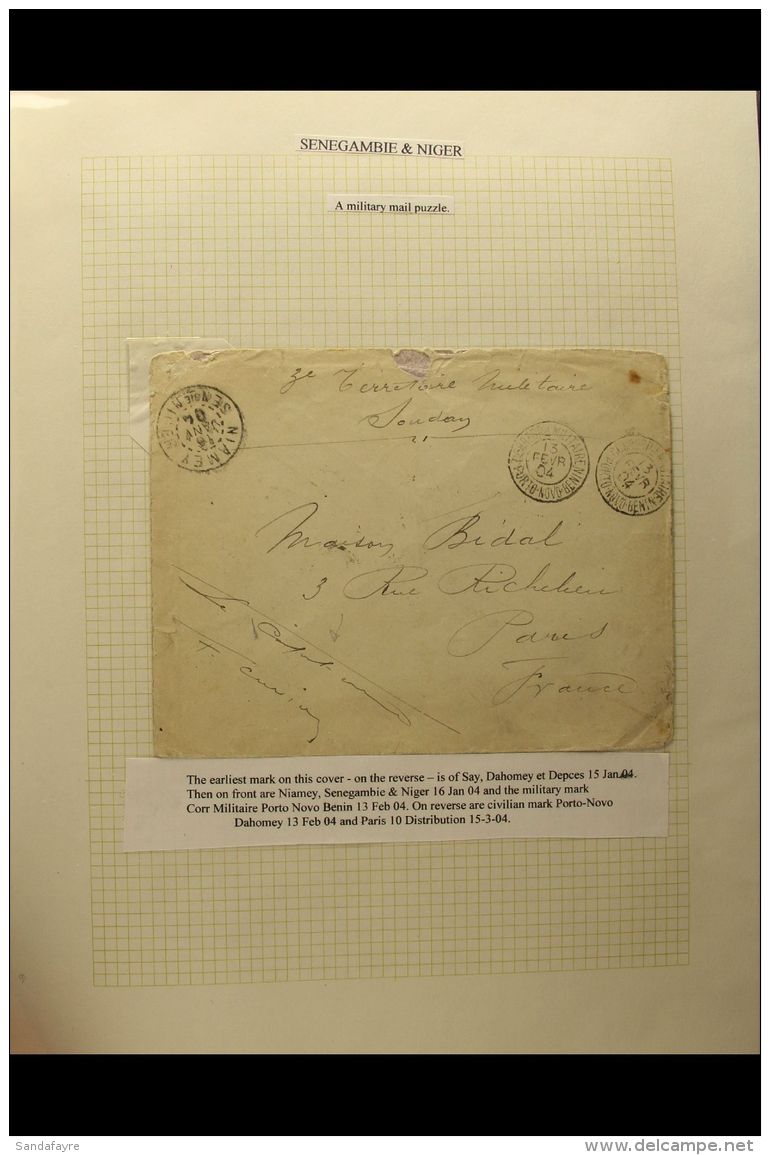 SENEGAMBIE & NIGER
A military mail puzzle.
3e Territoire Militaire
Soudan
NIAMEY
13
FEVR
04
PORTO-NOVO-BENIN
PORTO-NOVO-BENIN
Maison Bidal
3 Rue Richelieu
Paris
France
Le
The earliest mark on this cover - on the reverse – is of Say, Dahomey et Depces 15 Jan 04.
Then on front are Niamey, Senegambie & Niger 16 Jan 04 and the military mark
Corr Militaire Porto Novo Benin 13 Feb 04. On reverse are civilian mark Porto-Novo
Dahomey 13 Feb 04 and Paris 10 Distribution 15-3-04.
Sandafayre
delcampe.net